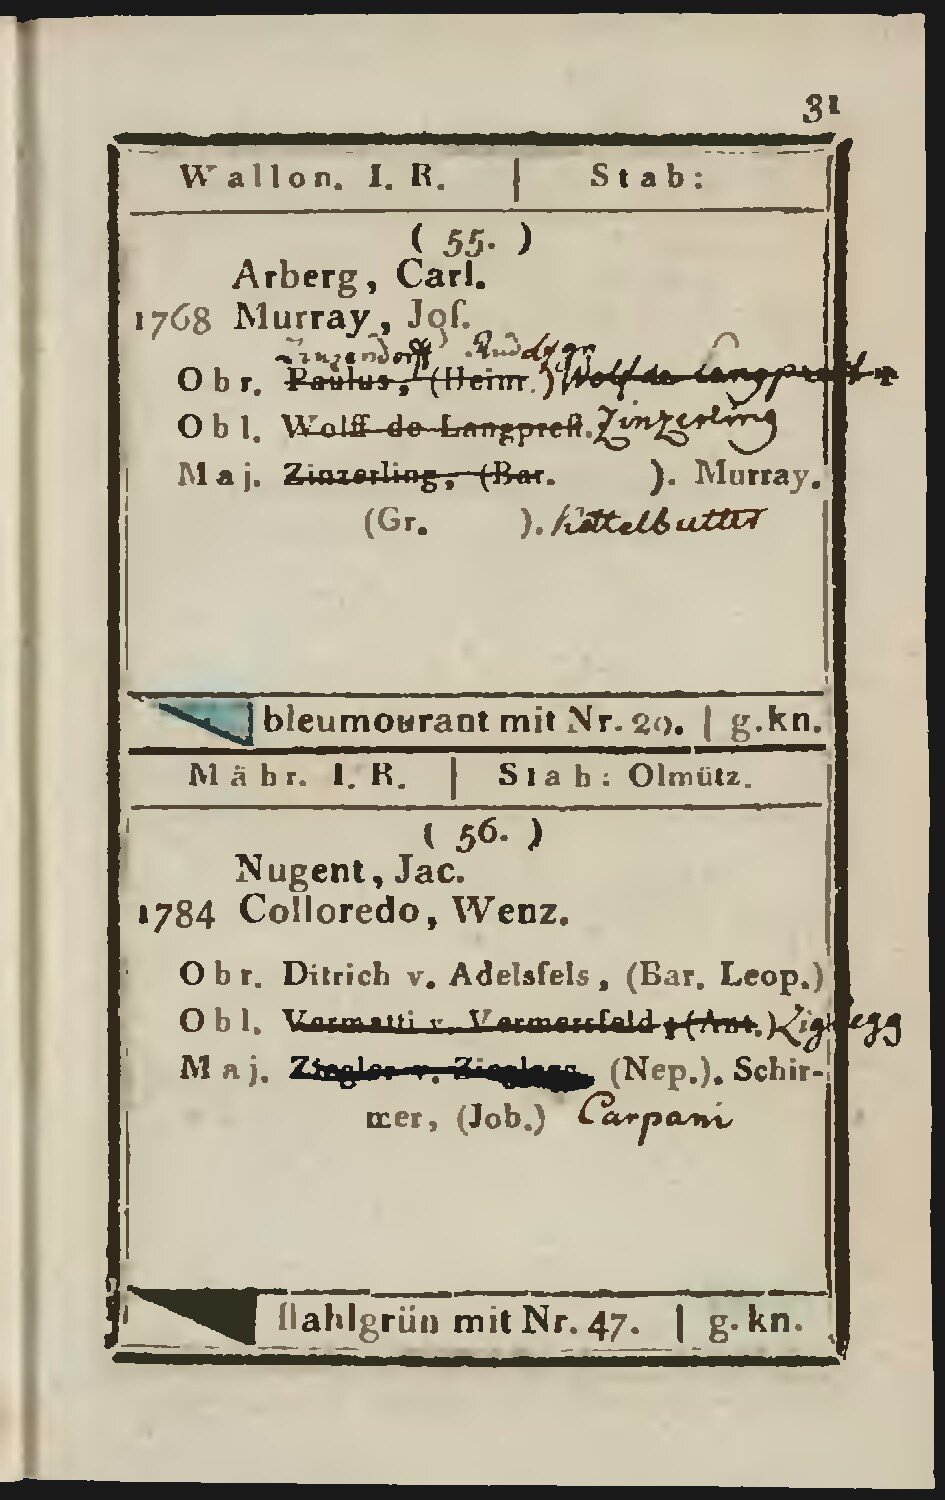 31
Wallon. I. R. | Stab:
( 55. )
Arberg, Carl.
1768 Murray, Joſ.
Obr. Paulus, (Heinr.) Wolf de Langpreſt
Obl. Wolff de Langpreſt. Zinzerling
Maj. Zinzerling, (Bar. ). Murray,
(Gr. ). Kettelbutter
bleumourant mit Nr. 20. | g. kn.
Mähr. I. R. | Stab: Olmütz.
( 56. )
Nugent, Jac.
1784 Colloredo, Wenz.
Obr. Ditrich v. Adelsfels, (Bar. Leop.)
Obl. Vermatti v. Vermersfeld, (Ant.)
Maj. Ziegler v. (Nep.). Schir-
mer, (Job.) Carpani
ſtahlgrün mit Nr. 47. | g. kn.